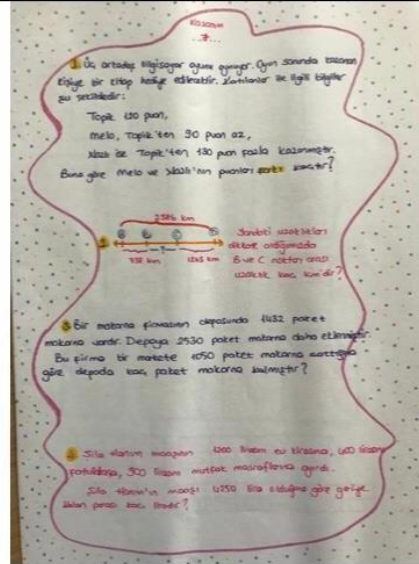 Kazanım
1. Üç arkadaş bilgisayar oyunu oynuyor. Oyun sonunda kazanan
kişiye bir kitap hediye edilecektir. Katılanlar ile ilgili bilgiler
şu şekildedir:
Topik puan,
Melo, Topik'ten 90 puan az,
Nazlı ise Topik'ten 130 puan fazla kazanmıştır.
Buna göre Melo ve Nazlı'nın puanları farkı kaçtır?
km
2. Yandaki uzaklıkları
A B C D dikkate aldığımızda
? B ve C noktası arası
km km uzaklık kaç km'dir?
3. Bir makarna firmasının deposunda 1432 paket
makarna vardır. Depoya 2530 paket makarna daha eklenmiştir.
Bu firma bir markete 1050 paket makarna sattığına
göre depoda kaç paket makarna kalmıştır?
4. Sıla Hanım maaşının 1200 lirasını ev kirasına, 400 lirasını
faturalara, 900 lirasını mutfak masraflarına ayırdı.
Sıla Hanım'ın maaşı 4250 lira olduğuna göre geriye
kalan parası kaç liradır?